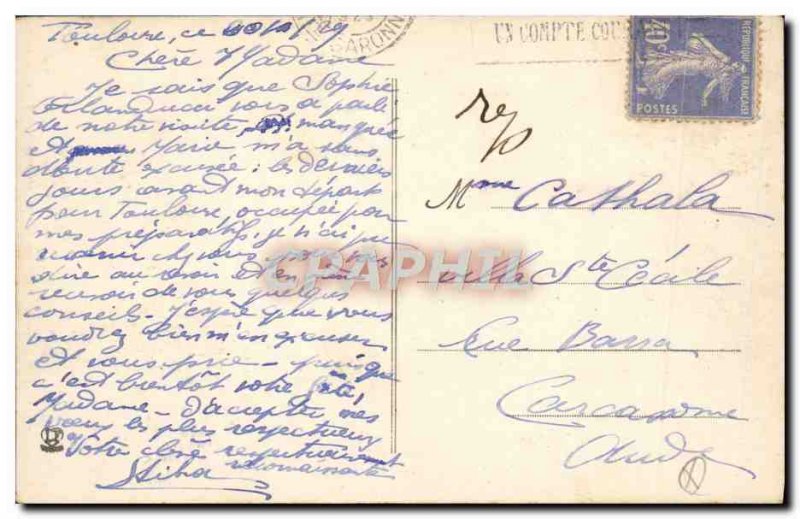 Toulouse, ce
Chère Madame
Je sais que Sophie
vous a parlé
de notre visite manquée
et Marie m'a sans
doute excusée : les derniers
jours avant mon départ
pour Toulouse, occupée par
mes préparatifs, je n'ai pu
dire au revoir et
recevoir de vous quelques
conseils. J'espère que vous
voudrez bien m'en excuser
et vous prie - puisque
c'est bientôt votre fête,
Madame - d'accepter mes
vœux les plus respectueux
Votre respectueusement
reconnaissante
GARONNE
UN COMPTE COU
40c
REPUBLIQUE FRANÇAISE
POSTES
rép
Mme Cathala
villa Ste Cécile
Rue Barra
Carcassonne
Aude
CPAPHIL